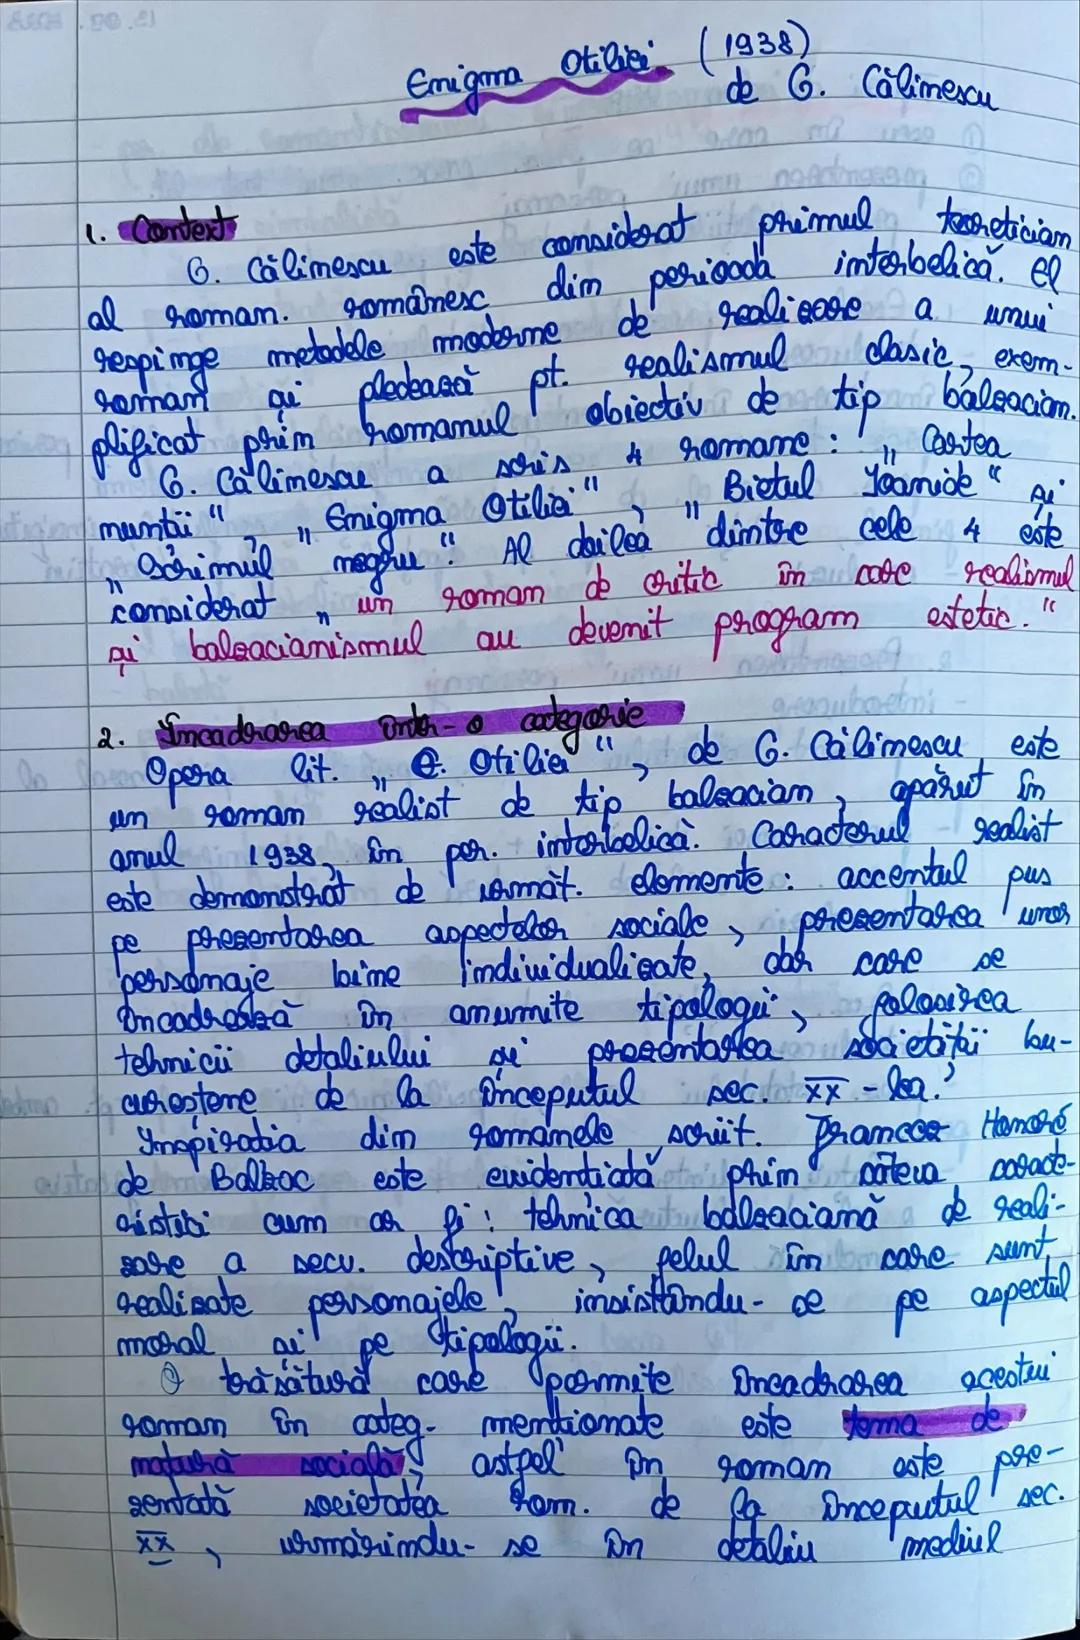 Enigma Otiliei (1938)
de G. Călinescu
1. Context
G. Călinescu este considerat primul teoretician
al roman. românesc din perioada interbelică. El
respinge metodele moderne de realizare a unui
roman și pledează pt. realismul clasic, exem-
plificat prin romanul obiectiv de tip balzacian.
G. Călinescu a scris 4 romane: „Cartea
nunții", „Enigma Otiliei", „Bietul Ioanide" și
„Scrinul negru". Al doilea dintre cele 4 este
considerat „un roman de critic în care realismul
și balzacianismul au devenit program estetic."
2. Încadrarea într-o categorie
Opera lit. „E. Otiliei", de G. Călinescu este
un roman realist de tip balzacian, apărut în
anul 1938, în per. interbelică. Caracterul realist
este demonstrat de următ. elemente: accentul pus
pe prezentarea aspectelor sociale, prezentarea unor
personaje bine individualizate, dar care se
încadrează în anumite tipologii, folosirea
tehnicii detaliului și prezentarea societății bu-
cureștene de la începutul sec. XX-lea.
Inspirația din romanele scriit. francez Honoré
de Balzac este evidențiată prin câteva caracte-
ristici cum ar fi: tehnica balzaciană de reali-
zare a secv. descriptive, felul în care sunt
realizate personajele, insistându-se pe aspectul
moral și pe tipologii.
O trăsătură care permite încadrarea acestui
roman în categ. menționate este tema de
natură socială, astfel în roman este pre-
zentată societatea rom. de la începutul sec.
XX, urmărindu-se în detaliu mediul